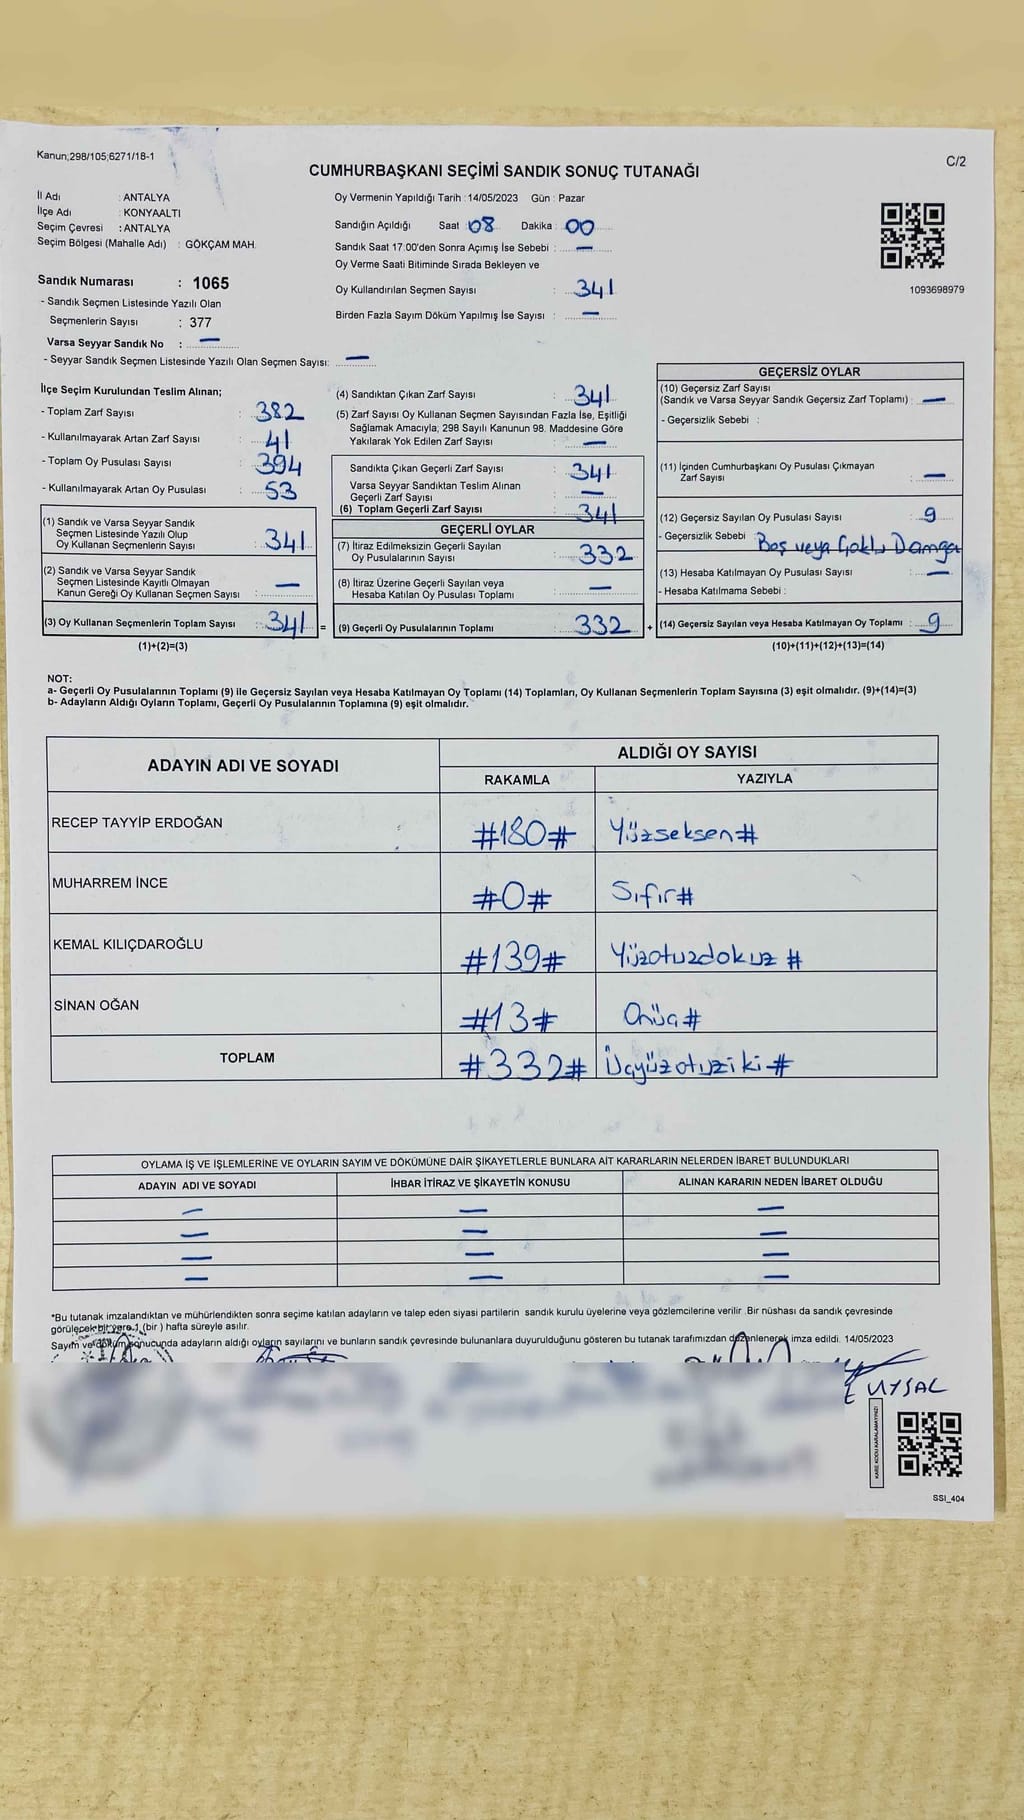 Kanun;298/105;6271/18-1
C/2
CUMHURBAŞKANI SEÇİMİ SANDIK SONUÇ TUTANAĞI
İl Adı : ANTALYA
İlçe Adı : KONYAALTI
Seçim Çevresi : ANTALYA
Seçim Bölgesi (Mahalle Adı) : GÖKÇAM MAH.
Oy Vermenin Yapıldığı Tarih : 14/05/2023 Gün : Pazar
Sandığın Açıldığı Saat : 08 Dakika : 00
Sandık Saat 17:00'den Sonra Açımış İse Sebebi : —
Oy Verme Saati Bitiminde Sırada Bekleyen ve
Oy Kullandırılan Seçmen Sayısı : 341
Birden Fazla Sayım Döküm Yapılmış İse Sayısı : —
1093698979
Sandık Numarası : 1065
- Sandık Seçmen Listesinde Yazılı Olan
Seçmenlerin Sayısı : 377
Varsa Seyyar Sandık No : —
- Seyyar Sandık Seçmen Listesinde Yazılı Olan Seçmen Sayısı: —
İlçe Seçim Kurulundan Teslim Alınan;
- Toplam Zarf Sayısı : 382
- Kullanılmayarak Artan Zarf Sayısı : 41
- Toplam Oy Pusulası Sayısı : 394
- Kullanılmayarak Artan Oy Pusulası : 53
(1) Sandık ve Varsa Seyyar Sandık
Seçmen Listesinde Yazılı Olup
Oy Kullanan Seçmenlerin Sayısı : 341
(2) Sandık ve Varsa Seyyar Sandık
Seçmen Listesinde Kayıtlı Olmayan
Kanun Gereği Oy Kullanan Seçmen Sayısı : —
(3) Oy Kullanan Seçmenlerin Toplam Sayısı : 341 =
(1)+(2)=(3)
(4) Sandıktan Çıkan Zarf Sayısı : 341
(5) Zarf Sayısı Oy Kullanan Seçmen Sayısından Fazla İse, Eşitliği
Sağlamak Amacıyla; 298 Sayılı Kanunun 98. Maddesine Göre
Yakılarak Yok Edilen Zarf Sayısı : —
Sandıkta Çıkan Geçerli Zarf Sayısı : 341
Varsa Seyyar Sandıktan Teslim Alınan
Geçerli Zarf Sayısı : —
(6) Toplam Geçerli Zarf Sayısı : 341
GEÇERLİ OYLAR
(7) İtiraz Edilmeksizin Geçerli Sayılan
Oy Pusulalarının Sayısı : 332
(8) İtiraz Üzerine Geçerli Sayılan veya
Hesaba Katılan Oy Pusulası Toplamı : —
(9) Geçerli Oy Pusulalarının Toplamı : 332 +
GEÇERSİZ OYLAR
(10) Geçersiz Zarf Sayısı
(Sandık ve Varsa Seyyar Sandık Geçersiz Zarf Toplamı) : —
- Geçersizlik Sebebi :
(11) İçinden Cumhurbaşkanı Oy Pusulası Çıkmayan
Zarf Sayısı : —
(12) Geçersiz Sayılan Oy Pusulası Sayısı : 9
- Geçersizlik Sebebi : Boş veya Çoklu Damga
(13) Hesaba Katılmayan Oy Pusulası Sayısı : —
- Hesaba Katılmama Sebebi :
(14) Geçersiz Sayılan veya Hesaba Katılmayan Oy Toplamı : 9
(10)+(11)+(12)+(13)=(14)
NOT:
a- Geçerli Oy Pusulalarının Toplamı (9) ile Geçersiz Sayılan veya Hesaba Katılmayan Oy Toplamı (14) Toplamları, Oy Kullanan Seçmenlerin Toplam Sayısına (3) eşit olmalıdır. (9)+(14)=(3)
b- Adayların Aldığı Oyların Toplamı, Geçerli Oy Pusulalarının Toplamına (9) eşit olmalıdır.
ADAYIN ADI VE SOYADI
ALDIĞI OY SAYISI
RAKAMLA YAZIYLA
RECEP TAYYİP ERDOĞAN #180# Yüzseksen#
MUHARREM İNCE #0# Sıfır#
KEMAL KILIÇDAROĞLU #139# Yüzotuzdokuz #
SİNAN OĞAN #13# Onüç#
TOPLAM #332# Üçyüzotuziki#
OYLAMA İŞ VE İŞLEMLERİNE VE OYLARIN SAYIM VE DÖKÜMÜNE DAİR ŞİKAYETLERLE BUNLARA AİT KARARLARIN NELERDEN İBARET BULUNDUKLARI
ADAYIN ADI VE SOYADI İHBAR İTİRAZ VE ŞİKAYETİN KONUSU ALINAN KARARIN NEDEN İBARET OLDUĞU
— — —
— — —
— — —
— — —
*Bu tutanak imzalandıktan ve mühürlendikten sonra seçime katılan adayların ve talep eden siyasi partilerin sandık kurulu üyelerine veya gözlemcilerine verilir .Bir nüshası da sandık çevresinde
görülecek bir yere 1 (bir ) hafta süreyle asılır.
Sayım ve döküm sonucunda adayların aldığı oyların sayılarını ve bunların sandık çevresinde bulunanlara duyurulduğunu gösteren bu tutanak tarafımızdan düzenlenerek imza edildi. 14/05/2023
UYSAL
KARE KODU KARALAMAYINIZ!
SSI_404